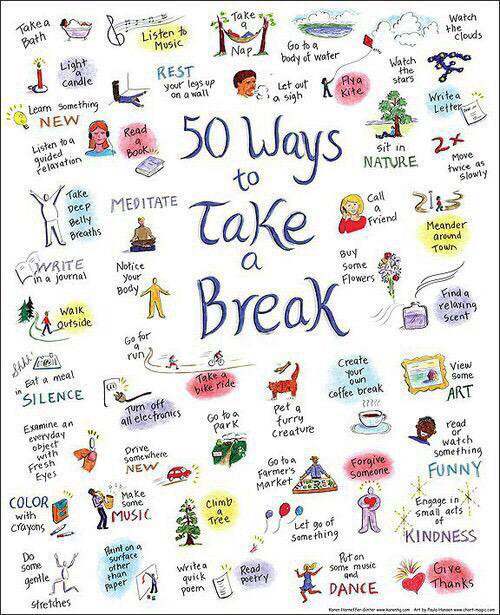 Take a
Bath
Listen to
Music
Take
a
Nap
Go to a
body of water
Watch
the
Clouds
Light
a
Candle
REST
your legs up
on a wall
Let out
a sigh
Fly a
Kite
Watch
the
stars
Learn Something
NEW
Write a
Letter
Listen to a
guided
relaxation
Read
a
Book
50 Ways
to
Take
a
Break
sit in
NATURE
2x
Move
twice as
slowly
Take
Deep
Belly
Breaths
MEDITATE
Call
a
Friend
Meander
around
Town
WRITE
in a journal
Notice
Your
Body
Buy
Some
Flowers
Find a
relaxing
Scent
Walk
Outside
Go for
a
run
Take a
bike ride
Shhh!
Eat a meal
in
SILENCE
Turn off
all electronics
Pet a
furry
creature
Create
your
own
coffee break
View
some
ART
Examine an
everyday
object
with
Fresh
Eyes
Drive
somewhere
NEW
Go to a
park
Go to a
Farmer's
Market
Forgive
Someone
read
or
watch
something
FUNNY
COLOR
with
Crayons
Make
some
MUSIC
Climb
a
Tree
Let go of
Something
Engage in
small acts
of
KINDNESS
Do
some
gentle
stretches
Paint on a
surface
other
than
paper
Write a
quick
poem
Read
poetry
Put on
some music
and
DANCE
Give
Thanks